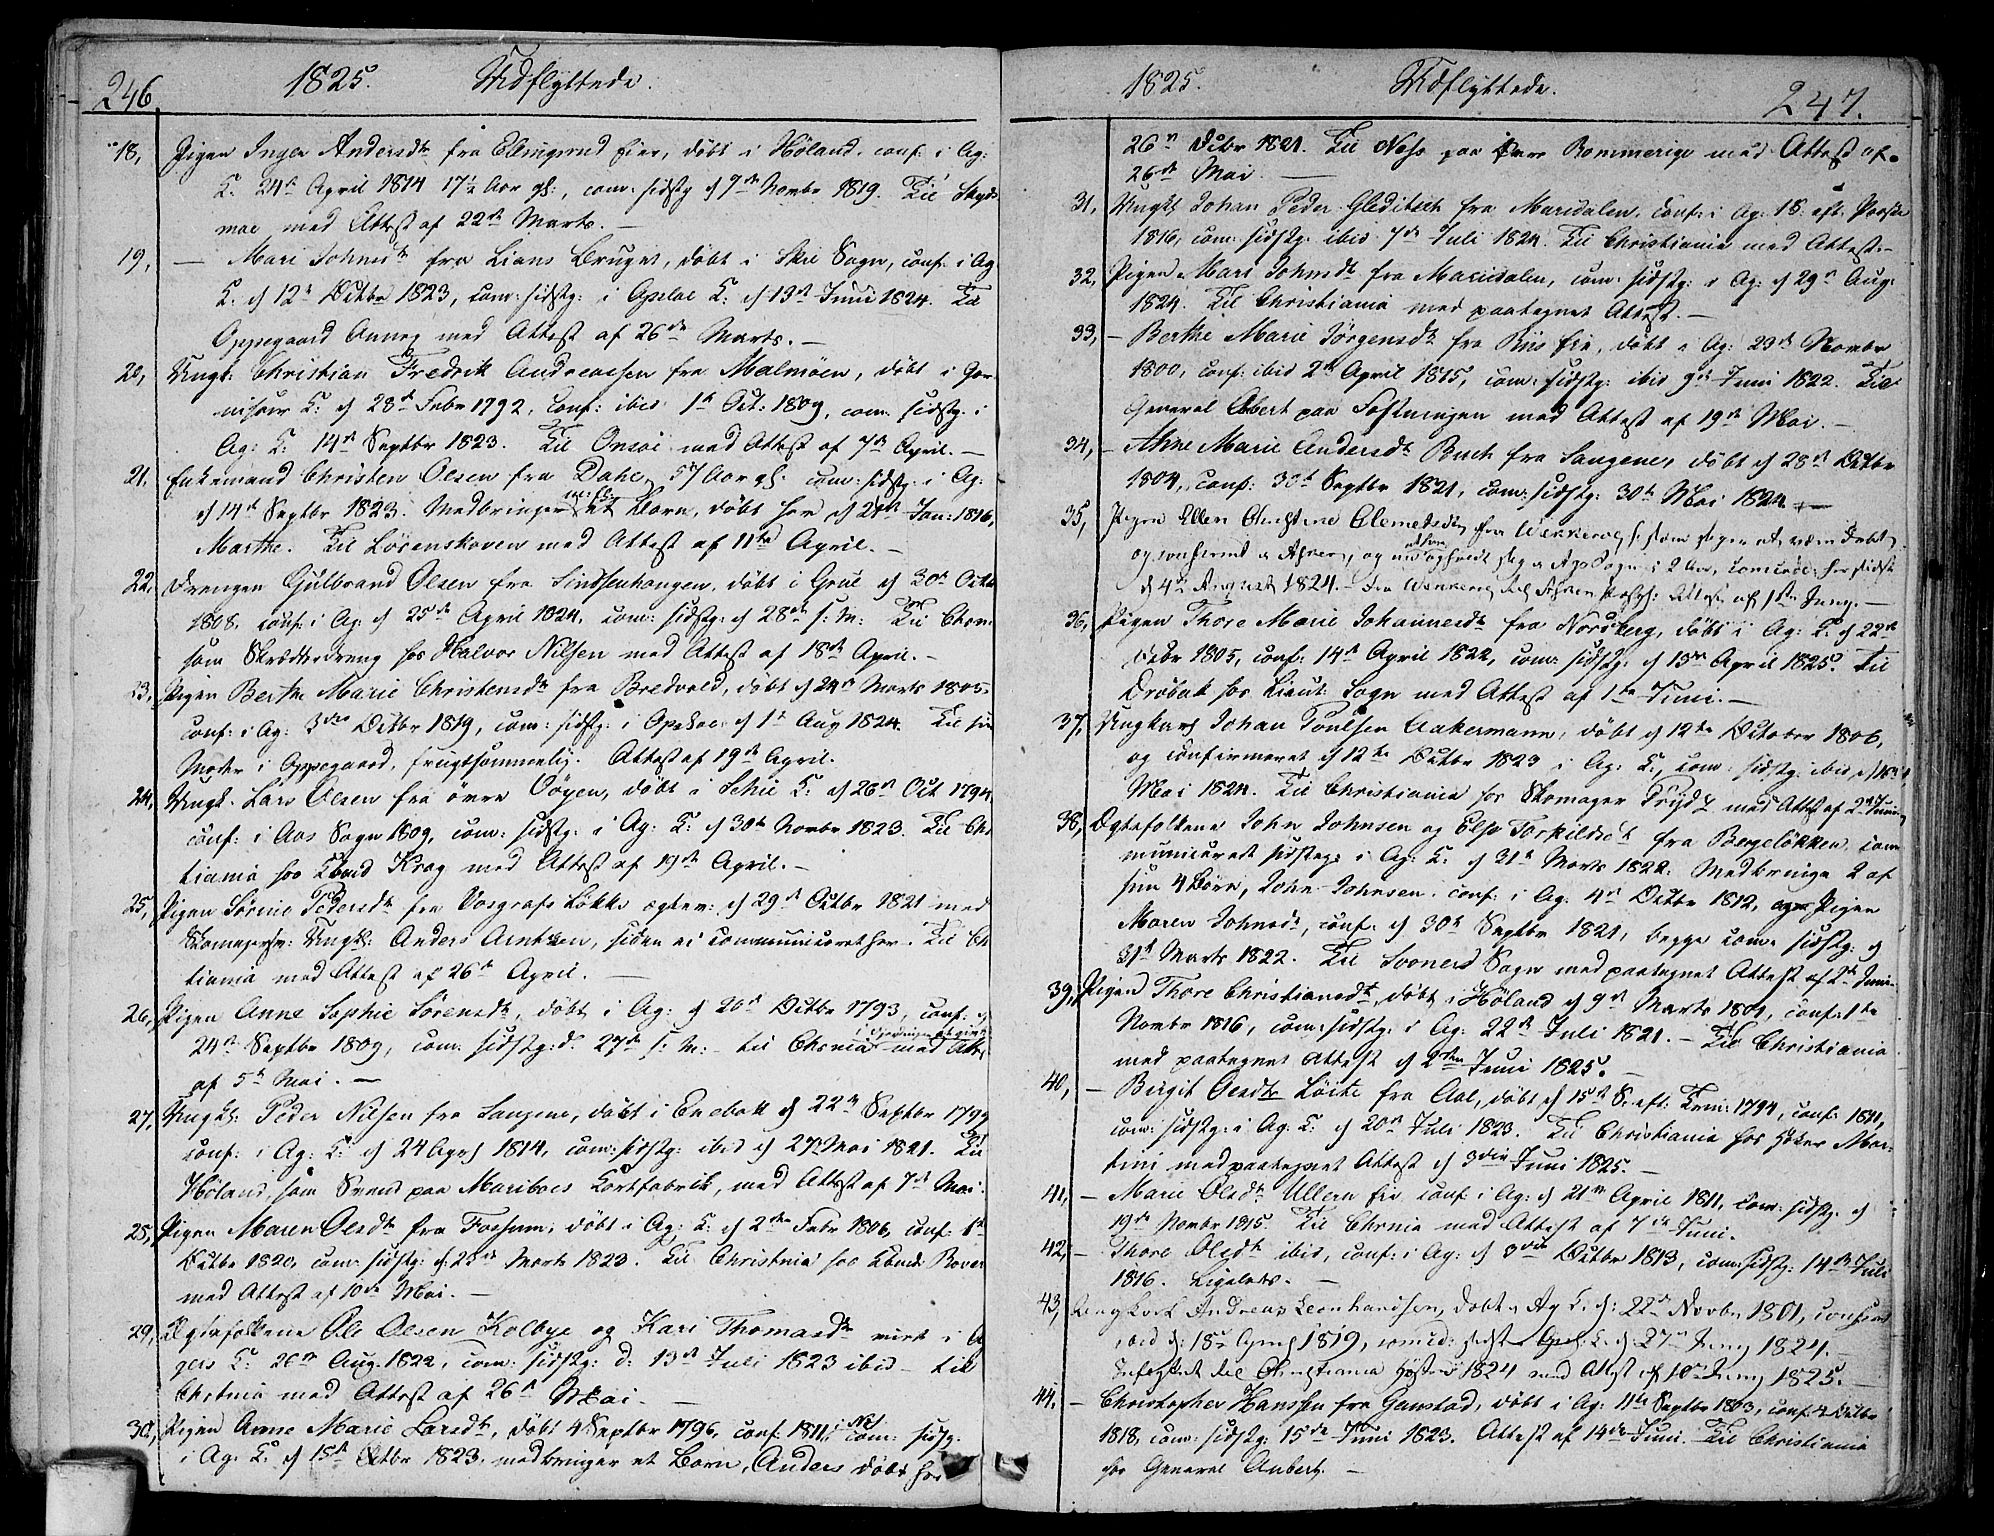 246
1825. Udflyttede.
18, Pigen Inger Andersdt fra Ellingsrud Eier, døbt i Høland, conf: i Ag:
K. 24d April 1814 17½ Aar gl:, com: sidstg d 7de Novbr 1819. Til Skyds
moe med Attest af 22de Marts. —
19, — Mari Johnsdt fra Lians Bruget, døbt i Skie Sogn, conf: i Ag
K. d 12t Octbr 1823, com: sidstg: i Opsloe K: d 13de Juni 1824. Til
Oppegaard Annex med Attest af 26de Marts. —
20, Ungk: Christian Fredrik Andreassen fra Malmøen, døbt i Gar
nisons K: d 28d Febr 1792, Conf: ibid 1t Oct: 1809, com: sidstg: i
Ag: K: 14d Septbr 1823. Til Onsøe med Attest af 7de April. —
21, Enkemand Christen Olsen fra Dahl, 57 Aar gl. com: sidstg: i Ag:
d 14d Septbr 1823. Medbringer et Barn, døbt her d 21d Jan: 1816,
Marthe. Til Lörenskoven med Attest af 11te April. —
22, Drengen Gulbrand Olsen fra Lindsenhougen, døbt i Grue d 30t Octbr
1808, conf: i Ag: d 25de April 1824, com: sidstg: d 28de s: M: Til Chr
som Skrædderdreng hos Halvor Nilsen med Attest af 18de April. —
23, Pigen Berthe Marie Christensdt fra Bredvold, døbt d 24de Marts 1805,
conf: i Ag: 3die Octbr 1819, com: sidstg: i Opsloe d 1t Aug 1824. Til sin
Moder i Oppegaard, frugtsommelig. Attest af 19de April.
24, Ungk. Lars Olsen fra övre Vöyen, døbt i Schie K: d 26d Oct 1794
conf: i Aas Sogn 1809, com: sidstg: i Ag: K: d 30t Novbr 1823. Til Chri
tiania hos Kbmd Krog med Attest af 19de April. —
25, Pigen Sörine Pedersdt fra Vosgrafs Løkke egtev: d 29d Octbr 1821 med
Skomagersv: Ungk: Anders Arntzen, siden ei communiceret her. Til Ch
tiania med Attest af 26d April. —
26, Pigen Anne Sophie Sörensdt, døbt i Ag: d 20d Octbr 1793, conf: d
24de Septbr 1809, com: sidstg: d. 27de s: M: — til Chrnia med Att
af 5t Mai. —
27, Ungk: Peder Nilsen fra Sangene, døbt i Enebak d 22de Septbr 1799
conf: i Ag: K: d 24 April 1814, com: sidstg: ibid d 27 Mai 1821. Til
Höland, som Svend paa Mariboes Kortfabrik, med Attest af 7de Mai.
25, Pigen Maren Olsdt fra Fossum, døbt i Ag: K: d 2den Febr 1806, conf: 1t
Octbr 1820, com: sidstg: d: 23de Marts 1823. Til Christnia hos Kbmd: Bover
med Attest af 10de Mai. —
29, Egtefolkene Ole Olsen Kolbye og Kari Thomasdt viet i A
gers K: 26de Aug. 1822, com: sidstg: d: 13de Juli 1823 ibid — til
Chrtnia med Attest af 26d Mai. —
30, Pigen Anne Marie Larsdt, døbt 4 Septbr 1796, conf: 1811, com: sidstg:
i Ag: K: d 15d Octbr 1823, medbringer et Barn, Anders døbt her
1825. Udflyttede. 247.
26d Octbr 1821. Til Næs paa Øvre Rommerige med Attest af
26de Mai. —
31, Ungk: Johan Peder Gleditsch fra Maridalen, conf: i Ag: 1S: eft: Paaske
1816, com: sidstg: ibid 7de Juli 1824. Til Christiania med Attest. —
32, Pigen Mari Johnsdt fra Maridalen, com: sidstg: i Ag: d 29d Aug:
1824. Til Christiania med paategnet Attest. —
33, — Berthe Marie Jörgensdt fra Riis Eie, døbt i Ag: 23de Novbr
1800, conf: ibid 2de April 1815, com: sidstg: ibid 9de Juni 1822. Til
General Obert paa Fæstningen med Attest af 19de Mai. —
34, — Anne Marie Andersdt Buch fra Sangene, døbt d 28de Octbr
1804, conf: 30t Septbr 1821, com: sidstg: 30t Mai 1824. —
35, Pigen Ellen Christine Clemetsdt fra Wækkerøe, som siger at være døbt
og confirmeret i Asker, og opholdt sig i Ags Sogn i 2 Aar, communic: her sidst
d 4de August 1824. — Fra Wækkerøe til Asker Præstgj: Attest af 1ste Juny. —
36, Pigen Thore Marie Johannesdt fra Nordberg, døbt i Ag: K: d 22de
Octbr 1805, conf: 14d April 1822, com: sidstg: d 15de April 1825. Til
Dröbak hos Lieut: Sogn med Attest af 1te Juni. —
37, Ungkarl Johan Poulsen Aakermann, døbt d 12te October 1806,
og confirmeret d 12te Octbr 1823 i Ag: K:, com: sidstg: ibid d 16d
Mai 1824. Til Christiania hos Skomager Fryd med Attest af 2d Juni
38, Egtefolkene John Johnsen og Else Torkildsdt fra Bergeløkken, com
municeret sidstg: i Ag: K: d 31t Marts 1822. Medbringe 2 af
sine 4 Børn, John Johnsen conf: i Ag: 4de Octbr 1812, og Pigen
Maren Johnsdt, conf: d 30t Septbr 1821, begge com: sidstg: d
31t Marts 1822. Til Sooners Sogn med paategnet Attest af 2d Juni.
39, Pigen Thore Christiansdt, døbt i Höland d 9de Marts 1801, conf: 1te
Novbr 1816, com: sidstg: i Ag: 22de Juli 1821. — Til Christiania
med paategnet Attest d 2den Juni 1825. —
40, — Birgit Olsdtr Löite fra Aal, døbt d 15d S: eft: Trin: 1794, conf: 1811,
com: sidstg: i Ag: K: d 20d Juli 1823. Til Christiania hos Høker Mar-
tini med paategnet Attest d 3die Juni 1825. —
41, — Marie Olsdt Ullern Eie conf: i Ag: d 21de April 1811, com: sidstg: d
19de Novbr 1815. Til Chrnia med Attest af 7de Juni.
42, — Thore Olsdt ibid, conf: i Ag: d 3die Octbr 1813, com: sidstg: 14de Juli
1816. Ligeledes. —
43, Ungkarl Andreas Leonhardsen, døbt i Ag K: d: 22d Novbr 1801, confirm
ibid d: 18de April 1819, comic: sidst Opsl: K: d: 27de Juny 1824. —
Indflyttet til Christiania Høsten 1824 med Attest af 10de Juny 1825. —
44. — Christopher Hanssen fra Grinstad, døbt i Ag: 11te Septbr 1803, conf: 4 Octbr
1818, com: sidstg: 15de Juni 1823. Attest af 14de Juni. Til Christiania
hos General Aubert. —